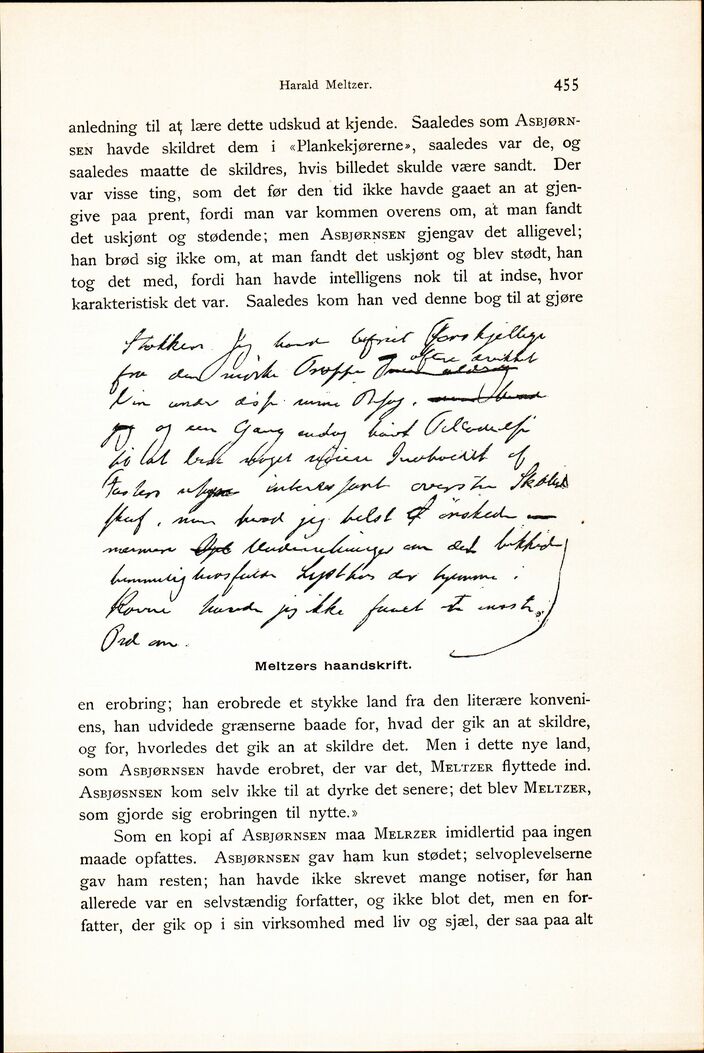 Harald Meltzer. 455
anledning til at lære dette udskud at kjende. Saaledes som Asbjørn-
sen havde skildret dem i «Plankekjørerne», saaledes var de, og
saaledes maatte de skildres, hvis billedet skulde være sandt. Der
var visse ting, som det før den tid ikke havde gaaet an at gjen-
give paa prent, fordi man var kommen overens om, at man fandt
det uskjønt og stødende; men Asbjørnsen gjengav det alligevel;
han brød sig ikke om, at man fandt det uskjønt og blev stødt, han
tog det med, fordi han havde intelligens nok til at indse, hvor
karakteristisk det var. Saaledes kom han ved denne bog til at gjøre
Stokken. Jeg havde befriet
fra den mørke
under
og een Gang endog havt
noget
interessant
, men hvad jeg helst ønskede —
nærmere om det
Lysthus der hjemme i
havde jeg ikke faaet
Ord om.
Meltzers haandskrift.
en erobring; han erobrede et stykke land fra den literære konveni-
ens, han udvidede grænserne baade for, hvad der gik an at skildre,
og for, hvorledes det gik an at skildre det. Men i dette nye land,
som Asbjørnsen havde erobret, der var det, Meltzer flyttede ind.
Asbjøsnsen kom selv ikke til at dyrke det senere; det blev Meltzer,
som gjorde sig erobringen til nytte.»
Som en kopi af Asbjørnsen maa Melrzer imidlertid paa ingen
maade opfattes. Asbjørnsen gav ham kun stødet; selvoplevelserne
gav ham resten; han havde ikke skrevet mange notiser, før han
allerede var en selvstændig forfatter, og ikke blot det, men en for-
fatter, der gik op i sin virksomhed med liv og sjæl, der saa paa alt